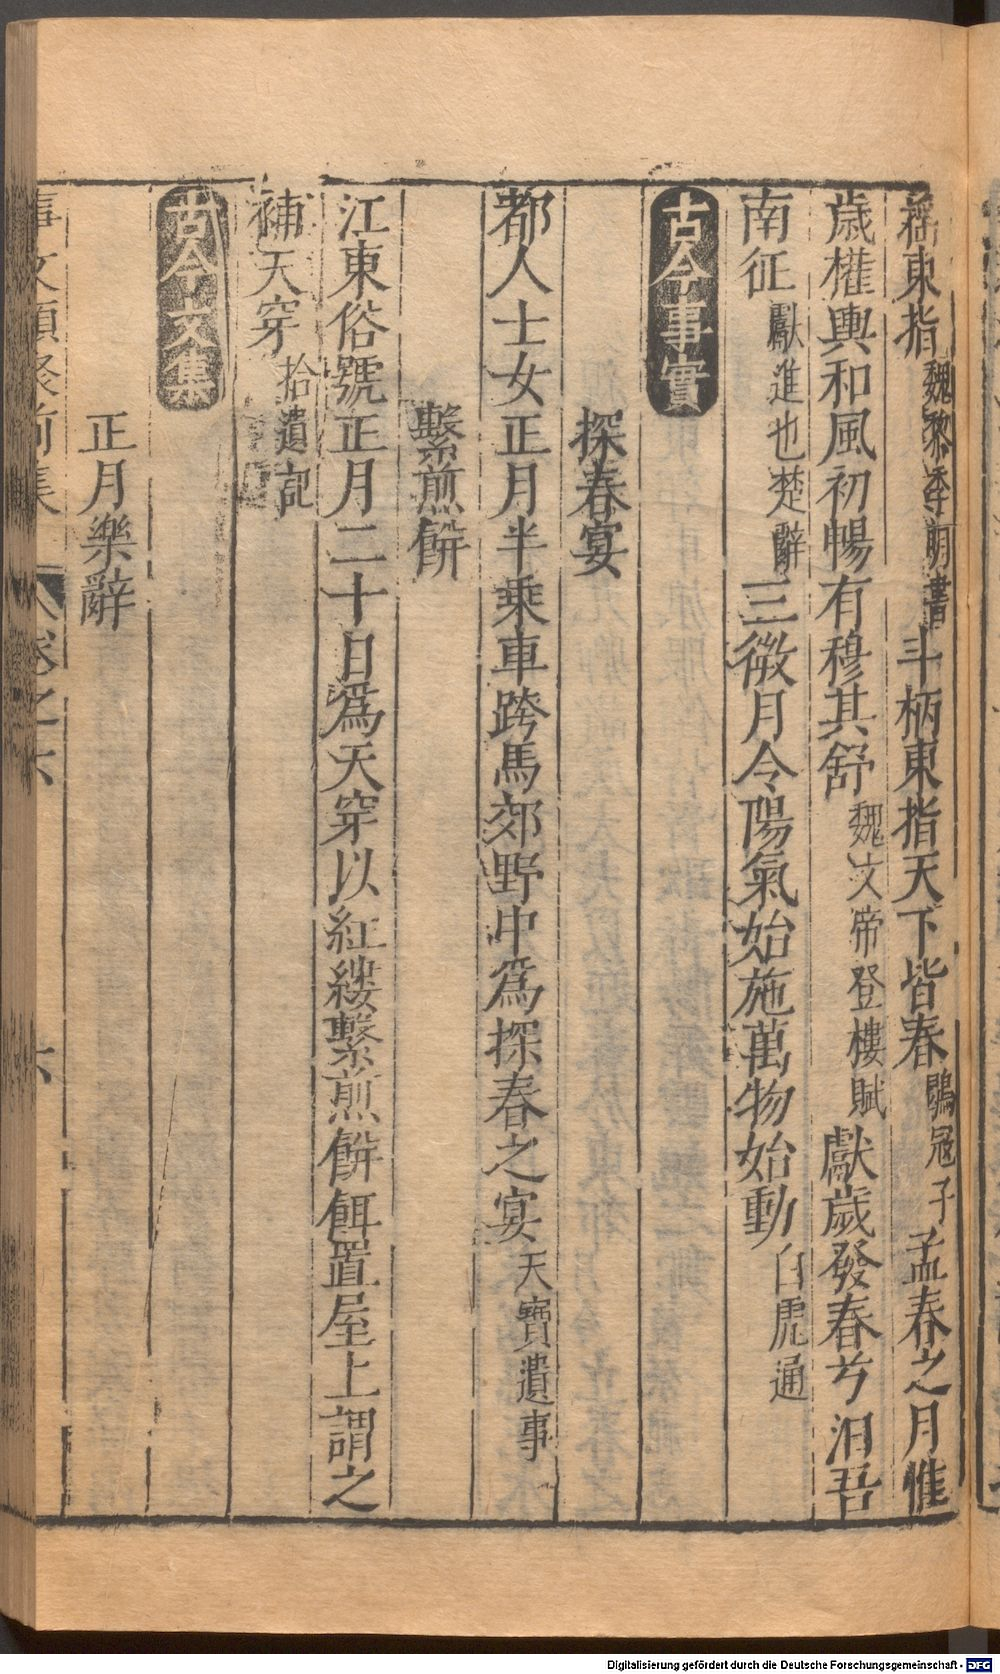 東指魏黎季明書斗柄東指天下皆春鶡冠子孟春之月惟
歲權輿和風初暢有穆其舒魏文帝登樓賦獻歲發春兮汨吾
南征獻進也楚辭三微月令陽氣始施萬物始動白虎通
古今事實
探春宴
都人士女正月半乗車跨馬郊野中為探春之宴天寶遺事
繫煎餅
江東俗號正月二十日為天穿以紅縷繫煎餅餌置屋上謂之
補天穿拾遺記
古今文集
正月樂辭
事文類聚前集 卷之六 六
Digitalisierung gefördert durch die Deutsche Forschungsgemeinschaft - DFG